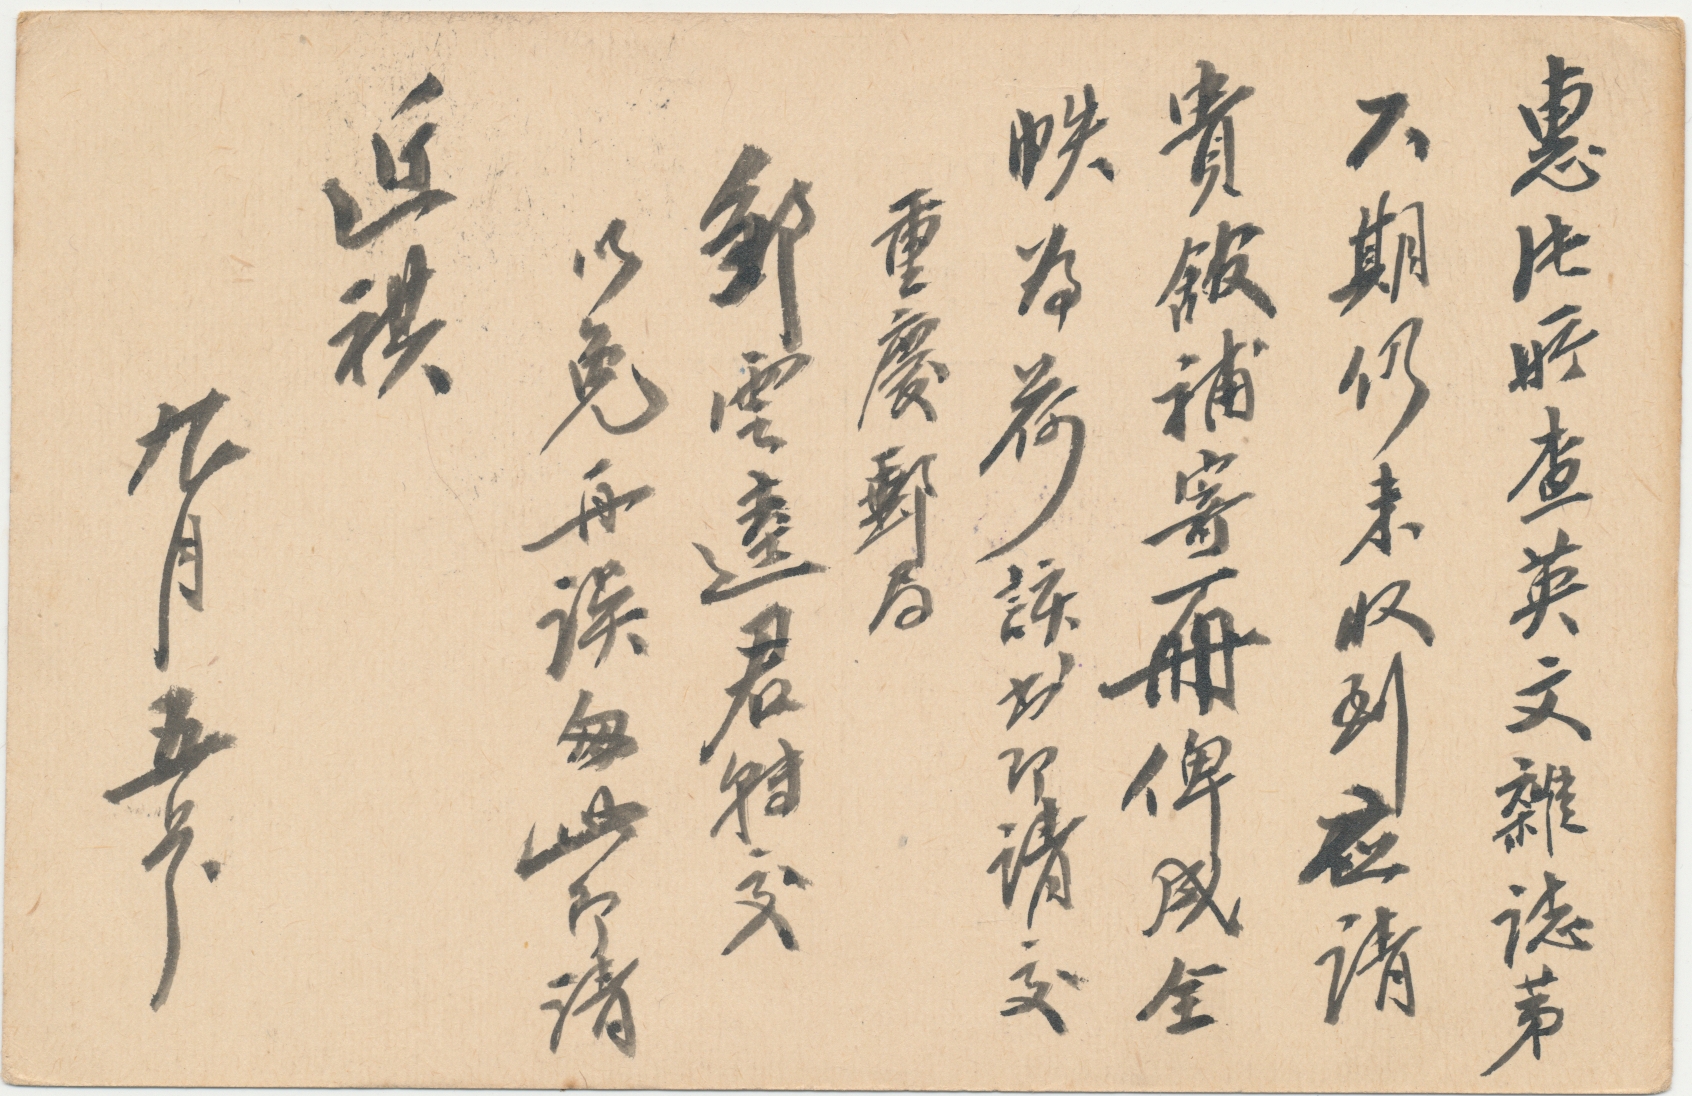 惠查英文雜誌第
六期仍未收到应請
貴館補寄一冊俾成全
帙為荷該书即請交
重慶郵局
雲逵君轉交
以免再誤匆此即請
近祺
九月五号